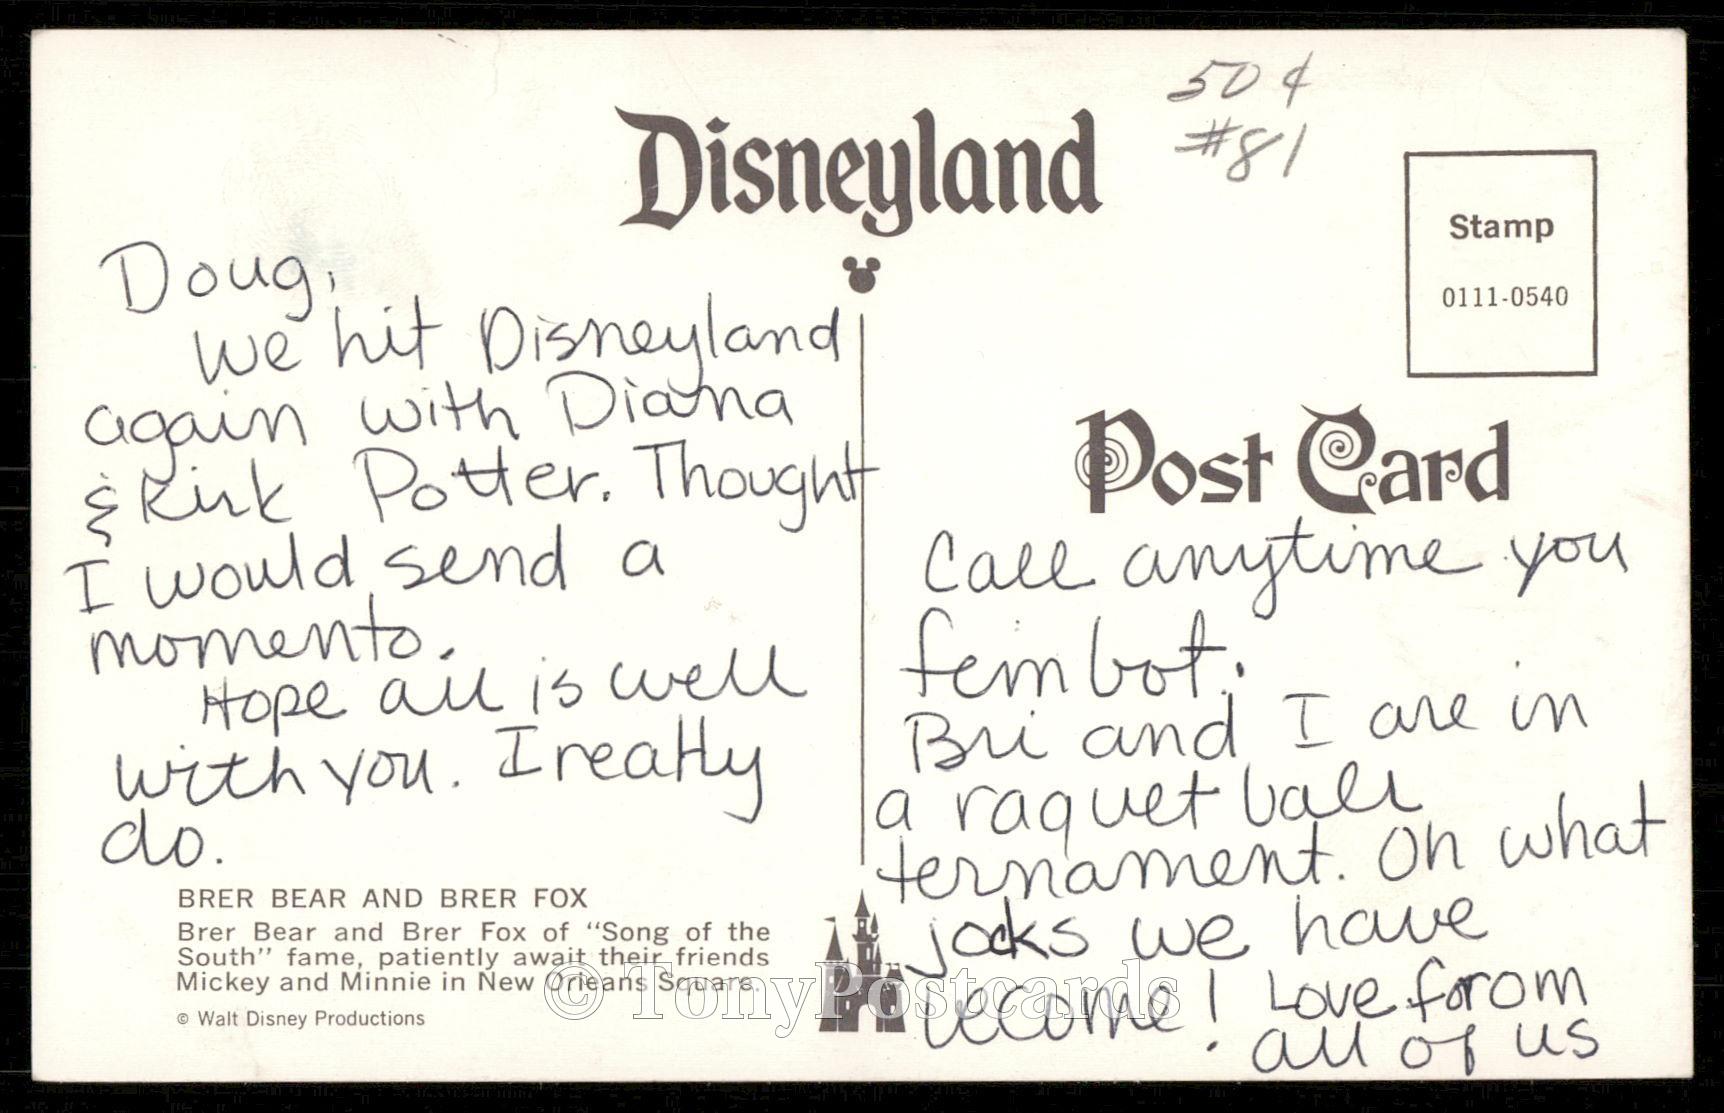 50¢
#81
Disneyland
Stamp
0111-0540
Doug,
We hit Disneyland
again with Diana
& Kirk Potter. Thought
I would send a
momento.
Hope all is well
with you. I really
do.
BRER BEAR AND BRER FOX
Brer Bear and Brer Fox of "Song of the
South" fame, patiently await their friends
Mickey and Minnie in New Orleans Square.
© Walt Disney Productions
Post Card
Call anytime you
fembot.
Bri and I are in
a raquet ball
ternament. Oh what
jocks we have
become! Love from
all of us
© TonyPostcards